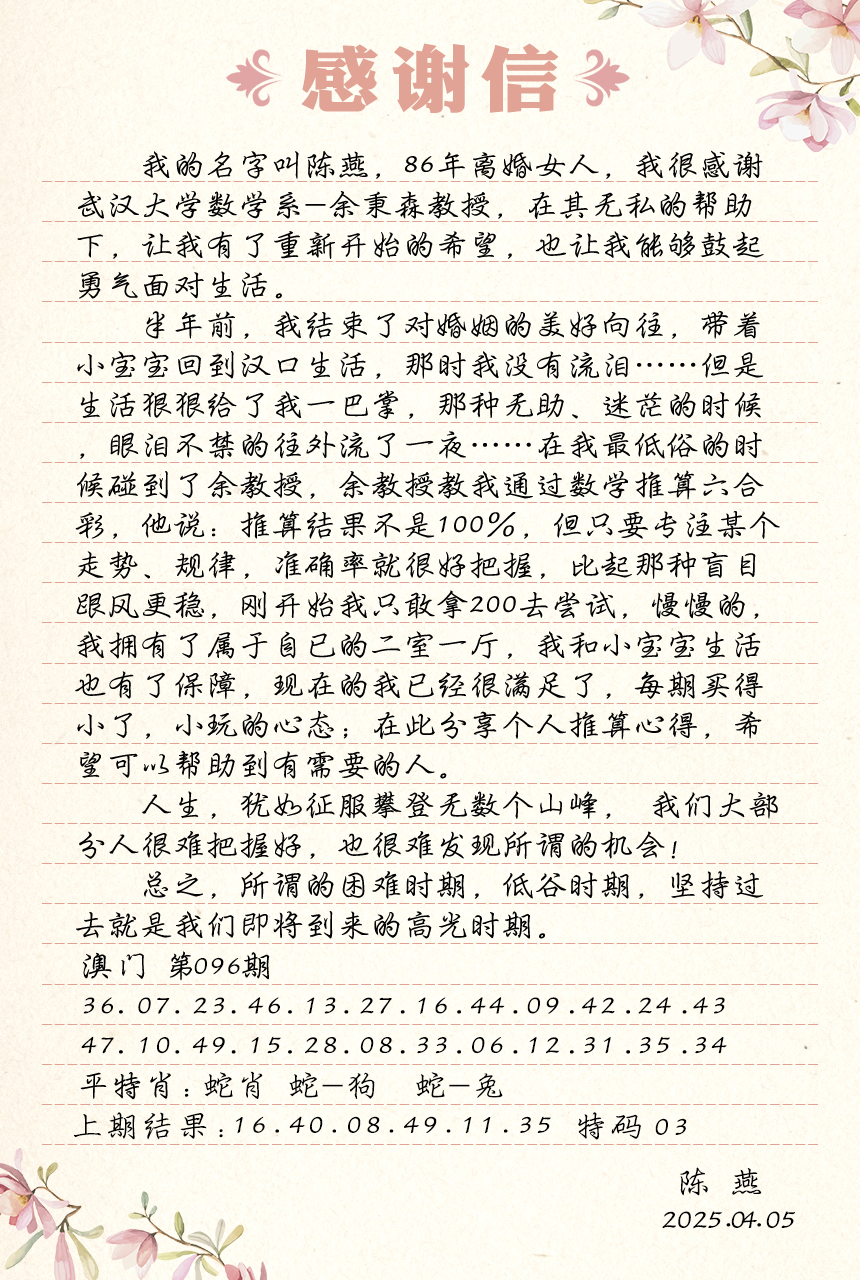 感谢信
我的名字叫陈燕，86年离婚女人，我很感谢
武汉大学数学系—余秉森教授，在其无私的帮助
下，让我有了重新开始的希望，也让我能够鼓起
勇气面对生活。
半年前，我结束了对婚姻的美好向往，带着
小宝宝回到汉口生活，那时我没有流泪……但是
生活狠狠给了我一巴掌，那种无助、迷茫的时候
，眼泪不禁的往外流了一夜……在我最低俗的时
候碰到了余教授，余教授教我通过数学推算六合
彩，他说：推算结果不是100%，但只要专注某个
走势、规律，准确率就很好把握，比起那种盲目
跟风更稳，刚开始我只敢拿200去尝试，慢慢的，
我拥有了属于自已的二室一厅，我和小宝宝生活
也有了保障，现在的我已经很满足了，每期买得
小了，小玩的心态；在此分享个人推算心得，希
望可以帮助到有需要的人。
人生，犹如征服攀登无数个山峰， 我们大部
分人很难把握好，也很难发现所谓的机会！
总之，所谓的困难时期，低谷时期，坚持过
去就是我们即将到来的高光时期。
澳门 第096期
36.07.23.46.13.27.16.44.09.42.24.43
47.10.49.15.28.08.33.06.12.31.35.34
平特肖：蛇肖 蛇—狗 蛇—兔
上期结果：16.40.08.49.11.35 特码 03
陈 燕
2025.04.05